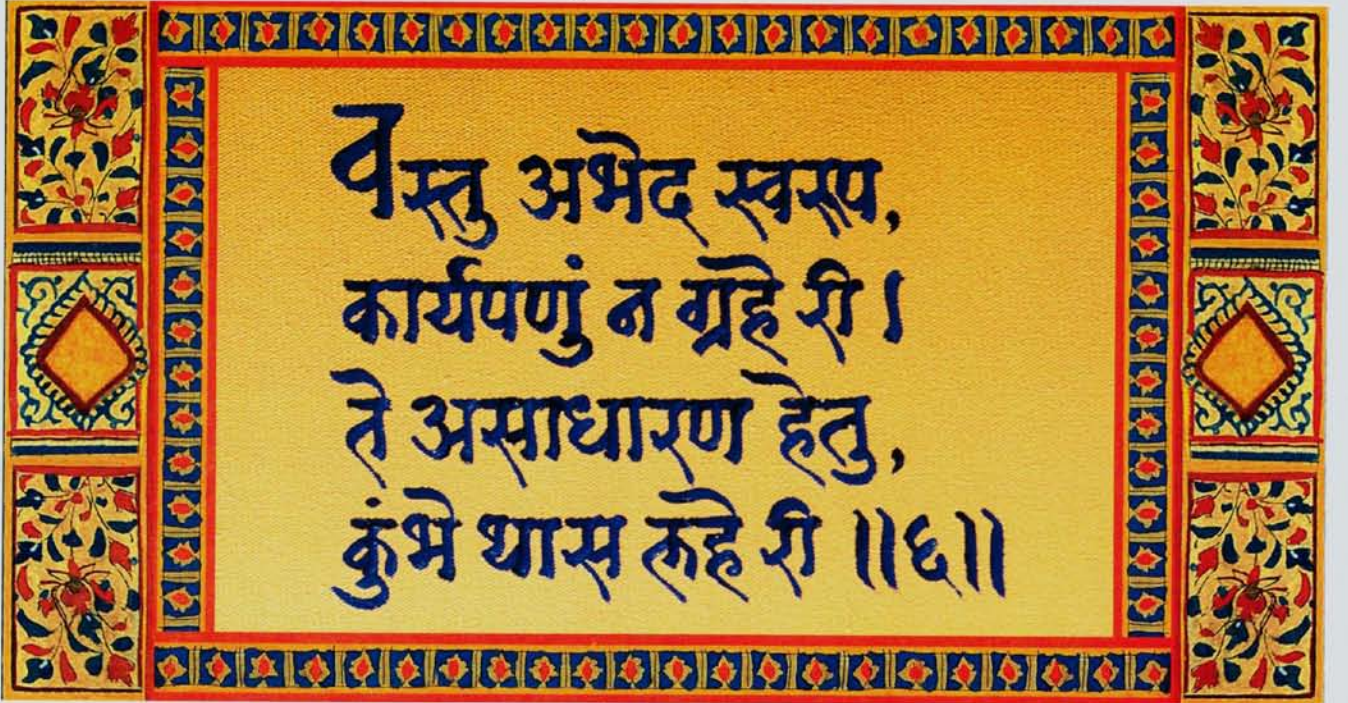 वस्तु अभेद स्वरूप,
कार्यपणुं न ग्रहे री।
ते असाधारण हेतु,
कुंभे थास लहे री ॥६॥